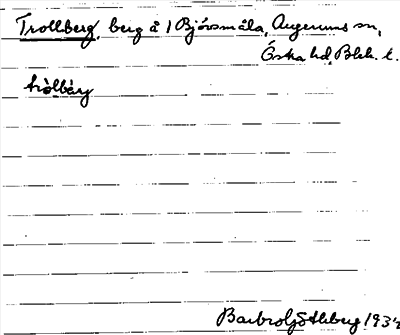 Trollberg, berg å 1 Björsmåla, Augerums sn,
Östra hd, Blek. l.
tròlbæ̀rj
Barbro Söderberg 193